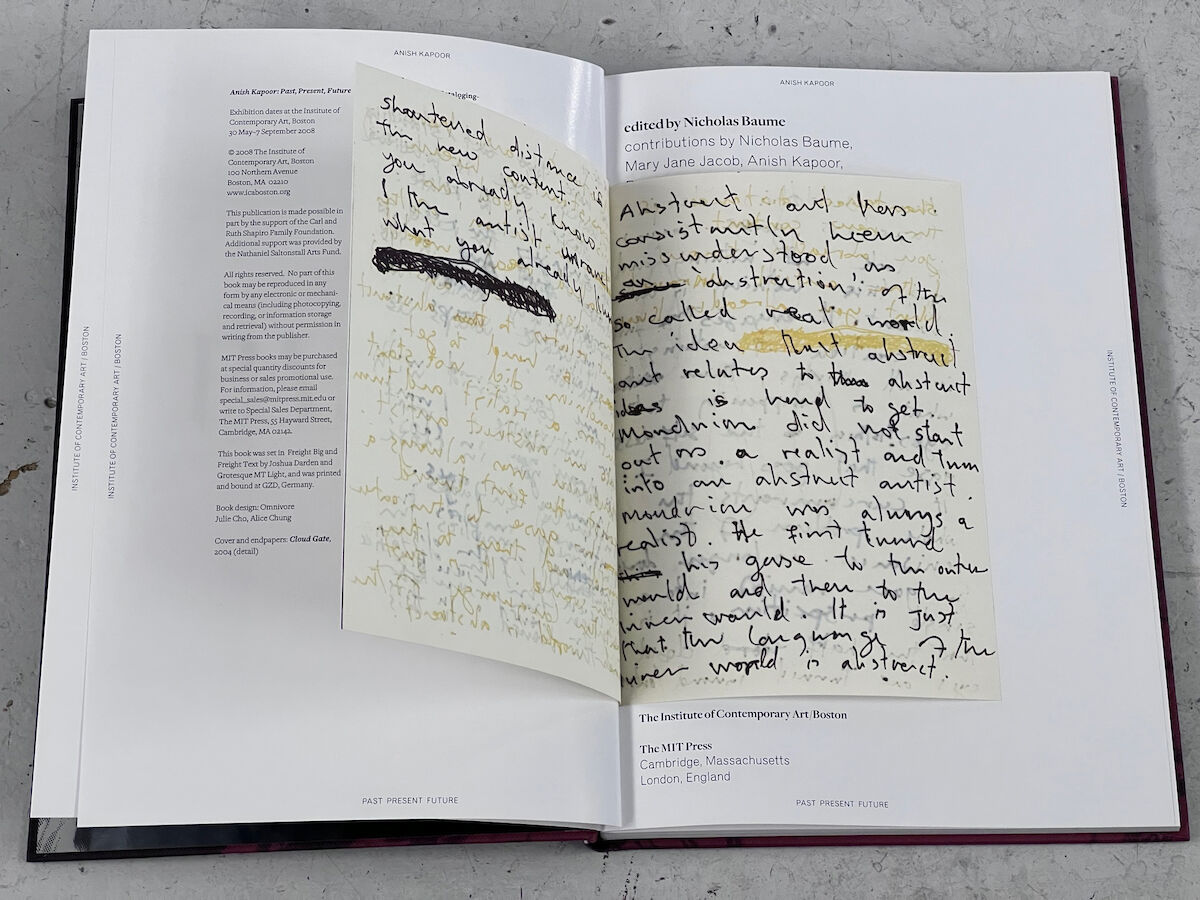 ANISH KAPOOR
Anish Kapoor: Past, Present, Future
Exhibition dates at the Institute of
Contemporary Art, Boston
30 May–7 September 2008
© 2008 The Institute of
Contemporary Art, Boston
100 Northern Avenue
Boston, MA 02210
www.icaboston.org
This publication is made possible in
part by the support of the Carl and
Ruth Shapiro Family Foundation.
Additional support was provided by
the Nathaniel Saltonstall Arts Fund.
All rights reserved. No part of this
book may be reproduced in any
form by any electronic or mechani-
cal means (including photocopying,
recording, or information storage
and retrieval) without permission in
writing from the publisher.
MIT Press books may be purchased
at special quantity discounts for
business or sales promotional use.
For information, please email
special_sales@mitpress.mit.edu or
write to Special Sales Department,
The MIT Press, 55 Hayward Street,
Cambridge, MA 02142.
This book was set in Freight Big and
Freight Text by Joshua Darden and
Grotesque MT Light, and was printed
and bound at GZD, Germany.
Book design: Omnivore
Julie Cho, Alice Chung
Cover and endpapers: Cloud Gate,
2004 (detail)
INSTITUTE OF CONTEMPORARY ART / BOSTON
INSTITUTE OF CONTEMPORARY ART / BOSTON
PAST PRESENT FUTURE
shortened distance is
the new content.
you already know.
I the artist
what you already
ANISH KAPOOR
edited by Nicholas Baume
contributions by Nicholas Baume,
Mary Jane Jacob, Anish Kapoor,
Abstract art has
consistantly been
missunderstood as
abstraction of the
so called real world.
The idea that abstract
art relates to abstract
ideas is hard to get.
Mondrian did not start
out as a realist and turn
into an abstract artist.
Mondrian was always a
realist. He first turned
his gase to the outer
world and then to the
inner world. It is just
that the language of the
inner world is abstract.
The Institute of Contemporary Art/Boston
The MIT Press
Cambridge, Massachusetts
London, England
PAST PRESENT FUTURE
INSTITUTE OF CONTEMPORARY ART / BOSTON